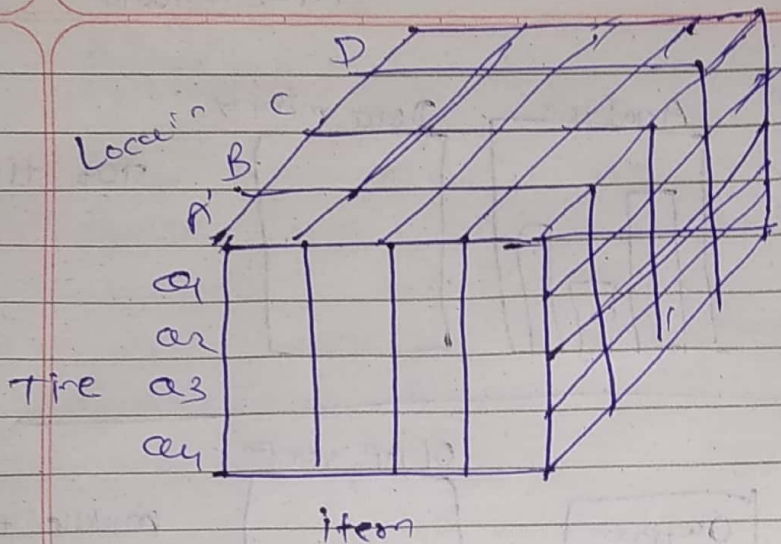 D
C
Locain
B
A
Q1
Q2
Time Q3
Q4
item